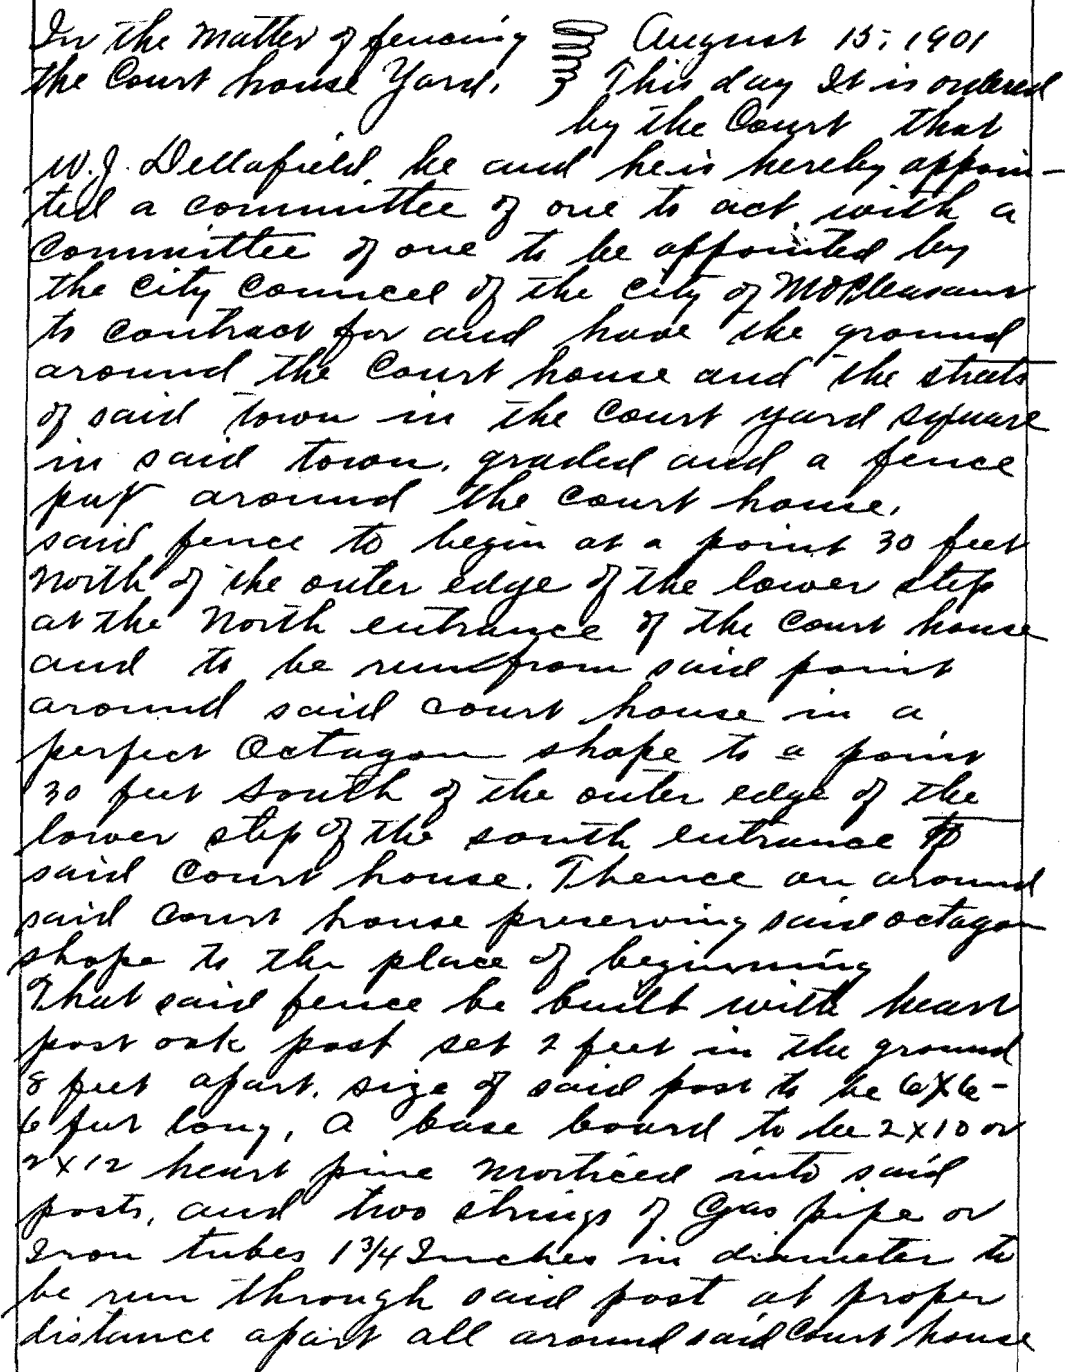 In the matter of fencing
the Court house Yard.
August 15, 1901
This day It is ordered
by the Court that
W.J. Dellafield, be and he is hereby appoin-
ted a committee of one to act with a
committee of one to be appointed by
the city council of the city of Mt Pleasant
to contract for and have the ground
around the Court house and the streets
of said town in the Court yard square
in said town, graded and a fence
put around the court house.
said fence to begin at a point 30 feet
North of the outer edge of the lower step
at the North entrance of the Court house
and to be run from said point
around said court house in a
perfect Octagon shape to a point
30 feet south of the outer edge of the
lower step of the south entrance to
said Court house. Thence on around
said court house preserving said octagon
shape to the place of beginning
That said fence be built with heart
post oak post set 2 feet in the ground
8 feet apart, size of said post to be 6x6-
6 feet long, A base board to be 2x10 or
2x12 heart pine morticed into said
posts, and two strings of Gas pipe or
Iron tubes 1 3/4 Inches in diameter to
be run through said post at proper
distance apart all around said Court house